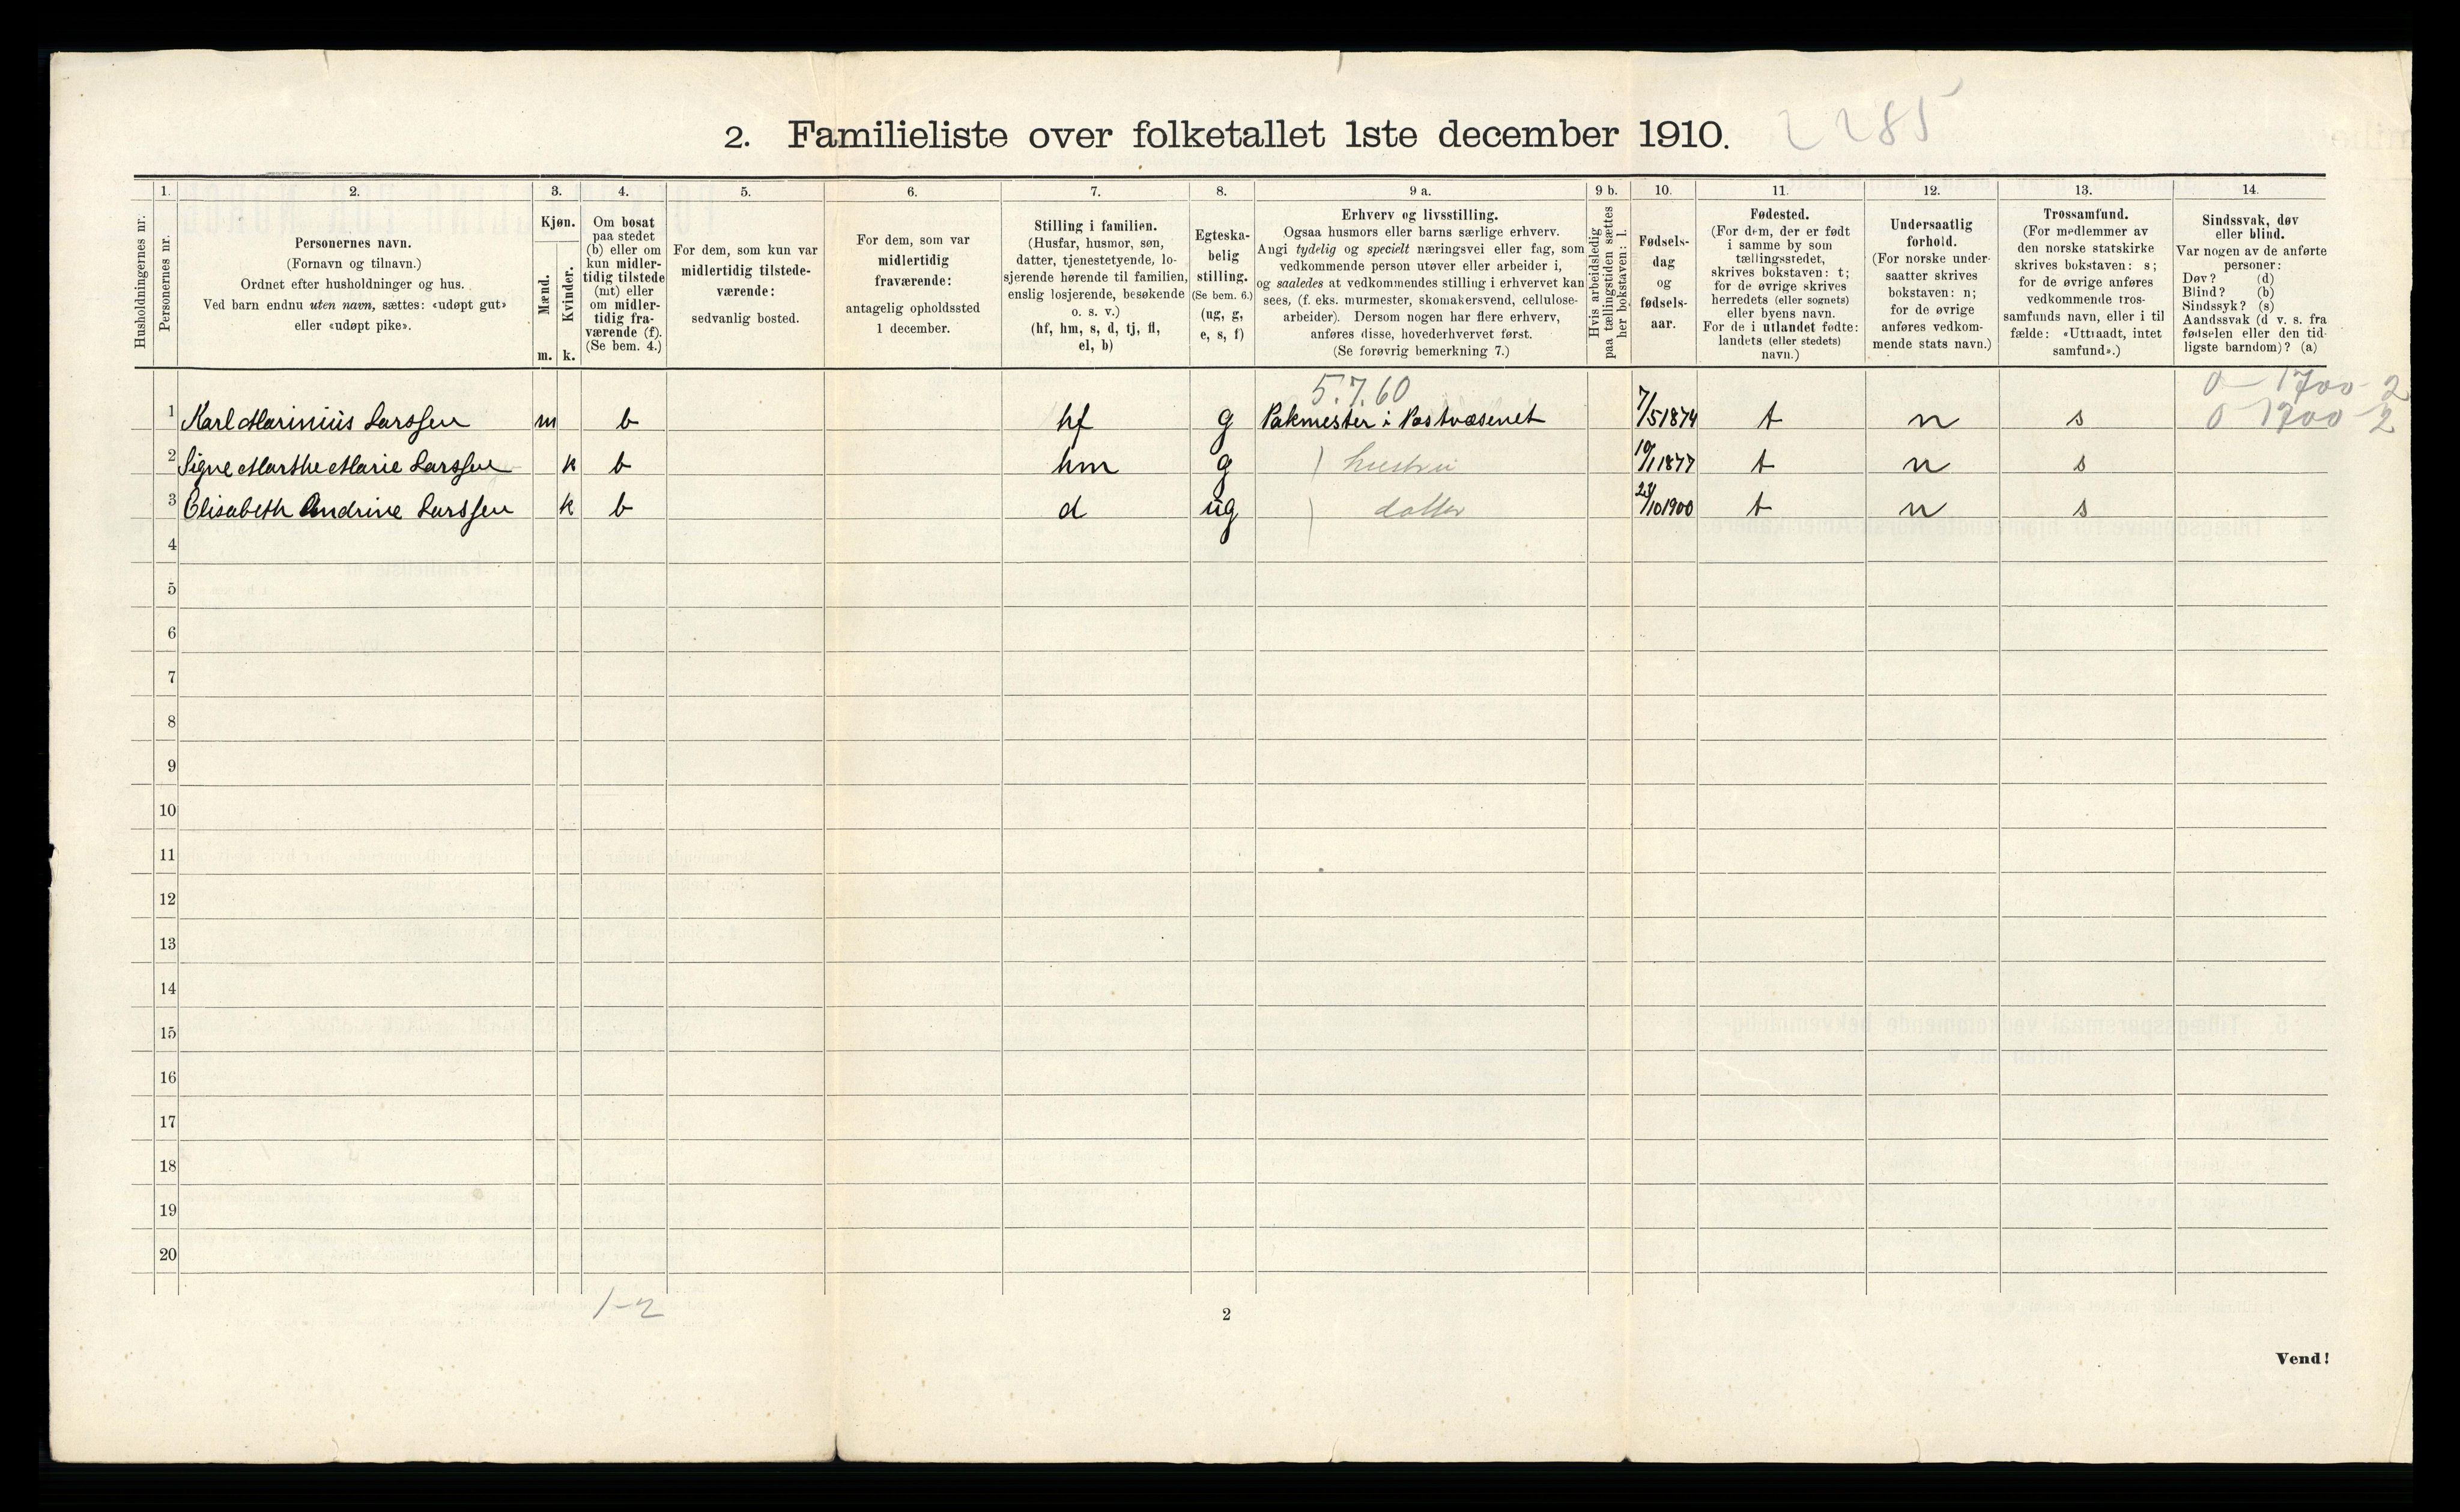 2. Familieliste over folketallet 1ste december 1910.
2285
Husholdningernes nr.
1.
Personernes nr.
2.
Personernes navn.
(Fornavn og tilnavn.)
Ordnet efter husholdninger og hus.
Ved barn endnu uten navn, sættes: «udøpt gut»
eller «udøpt pike».
3.
Kjøn.
Mænd.
m.
Kvinder.
k.
4.
Om bosat
paa stedet
(b) eller om
kun midler-
tidig tilstede
(mt) eller
om midler-
tidig fra-
værende (f).
(Se bem. 4.)
5.
For dem, som kun var
midlertidig tilstede-
værende:
sedvanlig bosted.
6.
For dem, som var
midlertidig
fraværende:
antagelig opholdssted
1 december.
7.
Stilling i familien.
(Husfar, husmor, søn,
datter, tjenestetyende, lo-
sjerende hørende til familien,
enslig losjerende, besøkende
o. s. v.)
(hf, hm, s, d, tj, fl,
el, b)
8.
Egteska-
belig
stilling.
(Se bem. 6.)
(ug, g,
e, s, f)
9 a.
Erhverv og livsstilling.
Ogsaa husmors eller barns særlige erhverv.
Angi tydelig og specielt næringsvei eller fag, som
vedkommende person utøver eller arbeider i,
og saaledes at vedkommendes stilling i erhvervet kan
sees, (f. eks. murmester, skomakersvend, cellulose-
arbeider). Dersom nogen har flere erhverv,
anføres disse, hovederhvervet først.
(Se forøvrig bemerkning 7.)
9 b.
Hvis arbeidsledig
paa tællingstiden sættes
her bokstaven: l.
10.
Fødsels-
dag
og
fødsels-
aar.
11.
Fødested.
(For dem, der er født
i samme by som
tællingsstedet,
skrives bokstaven: t;
for de øvrige skrives
herredets (eller sognets)
eller byens navn.
For de i utlandet fødte:
landets (eller stedets)
navn.)
12.
Undersaatlig
forhold.
(For norske under-
saatter skrives
bokstaven: n;
for de øvrige
anføres vedkom-
mende stats navn.)
13.
Trossamfund.
(For medlemmer av
den norske statskirke
skrives bokstaven: s;
for de øvrige anføres
vedkommende tros-
samfunds navn, eller i til
fælde: «Uttraadt, intet
samfund».)
14.
Sindssvak, døv
eller blind.
Var nogen av de anførte
personer:
Døv? (d)
Blind? (b)
Sindssyk? (s)
Aandssvak (d v. s. fra
fødselen eller den tid-
ligste barndom)? (a)
5.7.60
0 - 1700 - 2
1 Karl Marinius Larssen m b hf g Pakmester i Postvæsenet 7/5 1874 t n s 0 1700 - 2
2 Signe Marthe Marie Larssen k b hm g hustru 19/1 1877 t n s
3 Elisabeth Andrine Larssen k b d ug datter 23/10 1900 t n s
4
5
6
7
8
9
10
11
12
13
14
15
16
17
18
19
20
1-2
2
Vend!